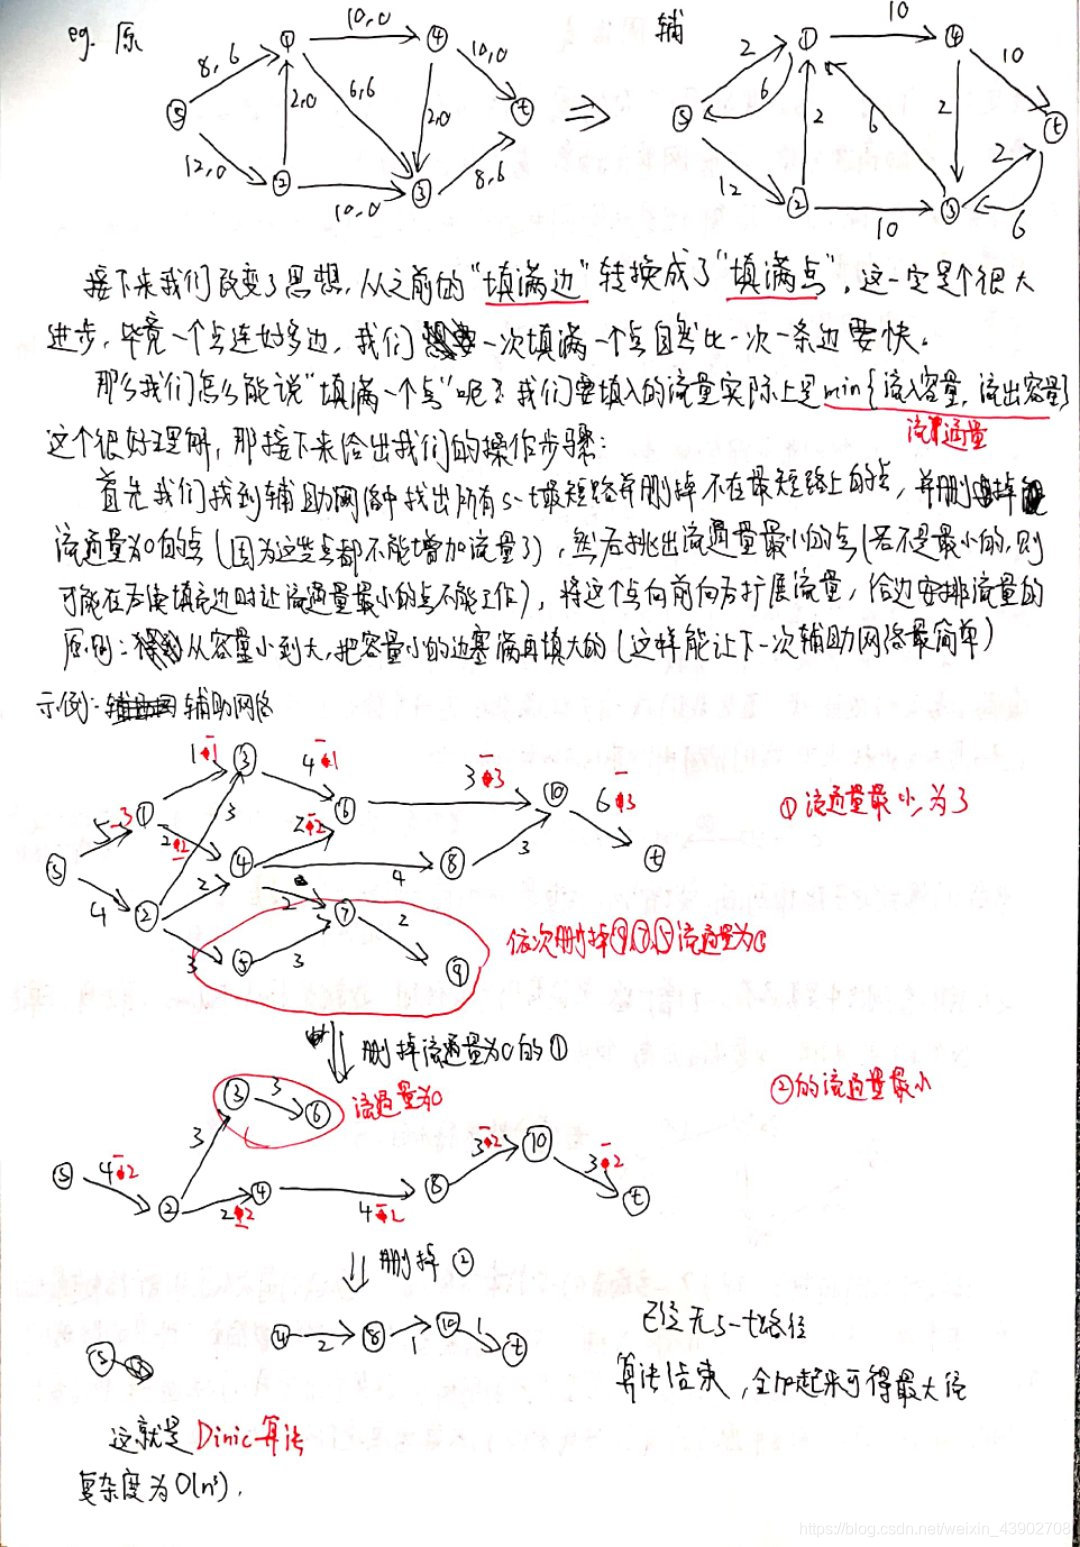 eg. 原
10,0
8,6
6,6
2,0
10,0
2,0
12,0
10,0
8,6
① ④ s ② ③ t
⇒
辅
10
2
6
10
2
6
2
2
12
10
6
① ④ s ② ③ t
接下来我们改变了思想，从之前的"填满边"转换成了"填满点"，这一定是个很大
进步，毕竟一个点连好多边，我们一次填满一个点自然比一次一条边要快。
那么我们怎么能说"填满一个点"呢？我们要填入的流量实际上是min{流入容量，流出容量}
流通量
这个很好理解，那接下来给出我们的操作步骤：
首先我们找到辅助网络中找出所有s-t最短路并删掉不在最短路上的点，并删掉
流通量为0的点（因为这些点都不能增加流量了），然后挑出流通量最小的点（若不是最小的，则
可能在后续填充边时让流通量最小的点不能工作），将这个点向前向后扩展流量，给边安排流量的
原则：从容量小到大，把容量小的边塞满再填大的（这样能让下一次辅助网络最简单）
示例：辅助网络
1-1
③
4-1
3-3
⑩
6-3
5-3
①
2-2
3
2-2
⑥
①流通量最小，为3
s
④
4
⑧
3
t
4
②
2
2
⑦
2
3
⑤
3
⑨
依次删掉⑨,⑦,⑤流通量为0
删掉流通量为0的①
③
3
⑥
流通量为0
②的流通量最小
3
3-2
⑩
s
4-2
②
2-2
④
4-2
⑧
3-2
t
删掉②
④
2
⑧
1
⑩
1
t
s
已经无s-t路径
算法结束，全加起来可得最大流
这就是Dinic算法
复杂度为O(n³).
https://blog.csdn.net/weixin_43902708